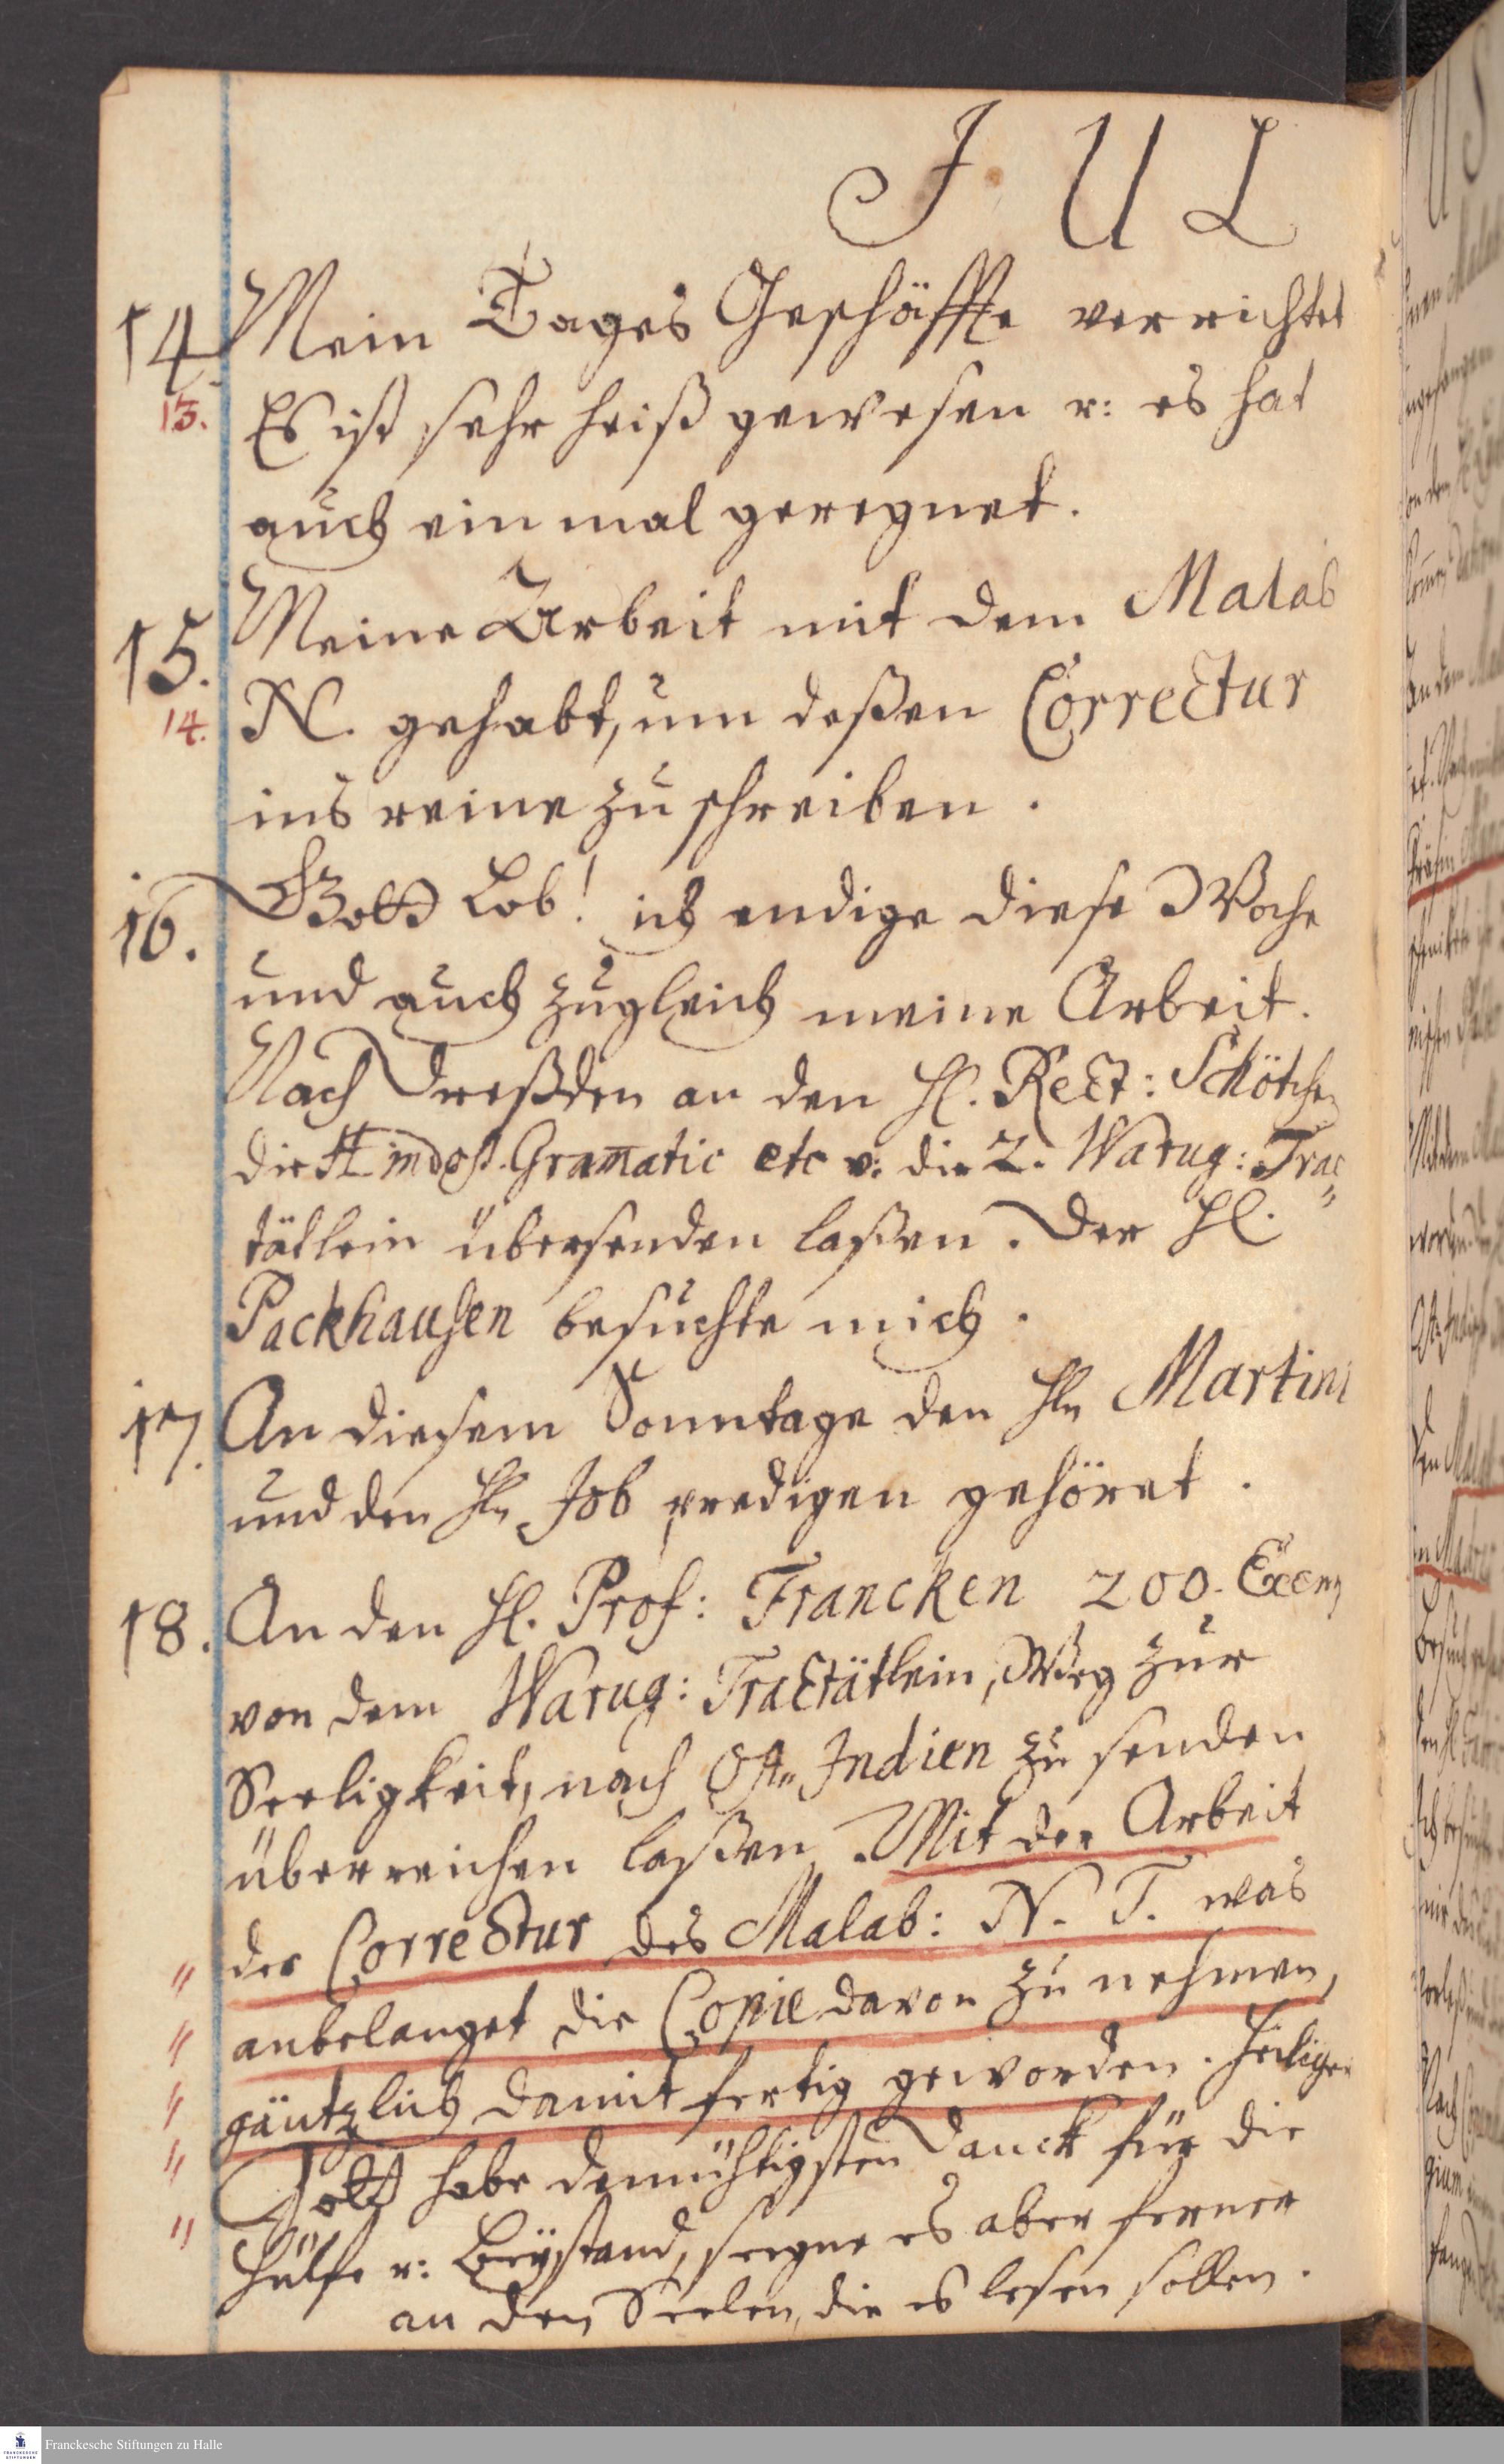 J U L
14. Mein Tages Geschäffte verrichtet
13. Es ist sehr heiß gewesen u: es hat
auch ein mal geregnet.
15. Meine Arbeit mit dem Malab
14. N. gehabt, um deßen Correctur
ins reine zu schreiben.
16. Gott Lob! ich endige diese Woche
und auch zugleich meine Arbeit.
Nach Dreßden an den H. Rect: Schötchen
die Hindost. Gramatic etc u: die 2. Warug: Trac
tätlein übersenden laßen. Der H.
Packhausen besuchte mich.
17. An diesem Sonntage den Hn Martini
und den Hn Job predigen gehöret.
18. An den H. Prof: Francken 200. Exem
von dem Warug: Tractätlein, Weg zur
Seeligkeit, nach Ost-Indien zu senden
überreichen laßen. Mit der Arbeit
" der Correctur des Malab: N. T. was
" anbelanget die Copie davon zu nehmen,
" gäntzlich damit fertig geworden. Heiliger
" Gott habe demühtigsten Danck für die
" Hülfe u: Beystand, seegne es aber ferner
an den Seelen, die es lesen sollen.
Franckesche Stiftungen zu Halle